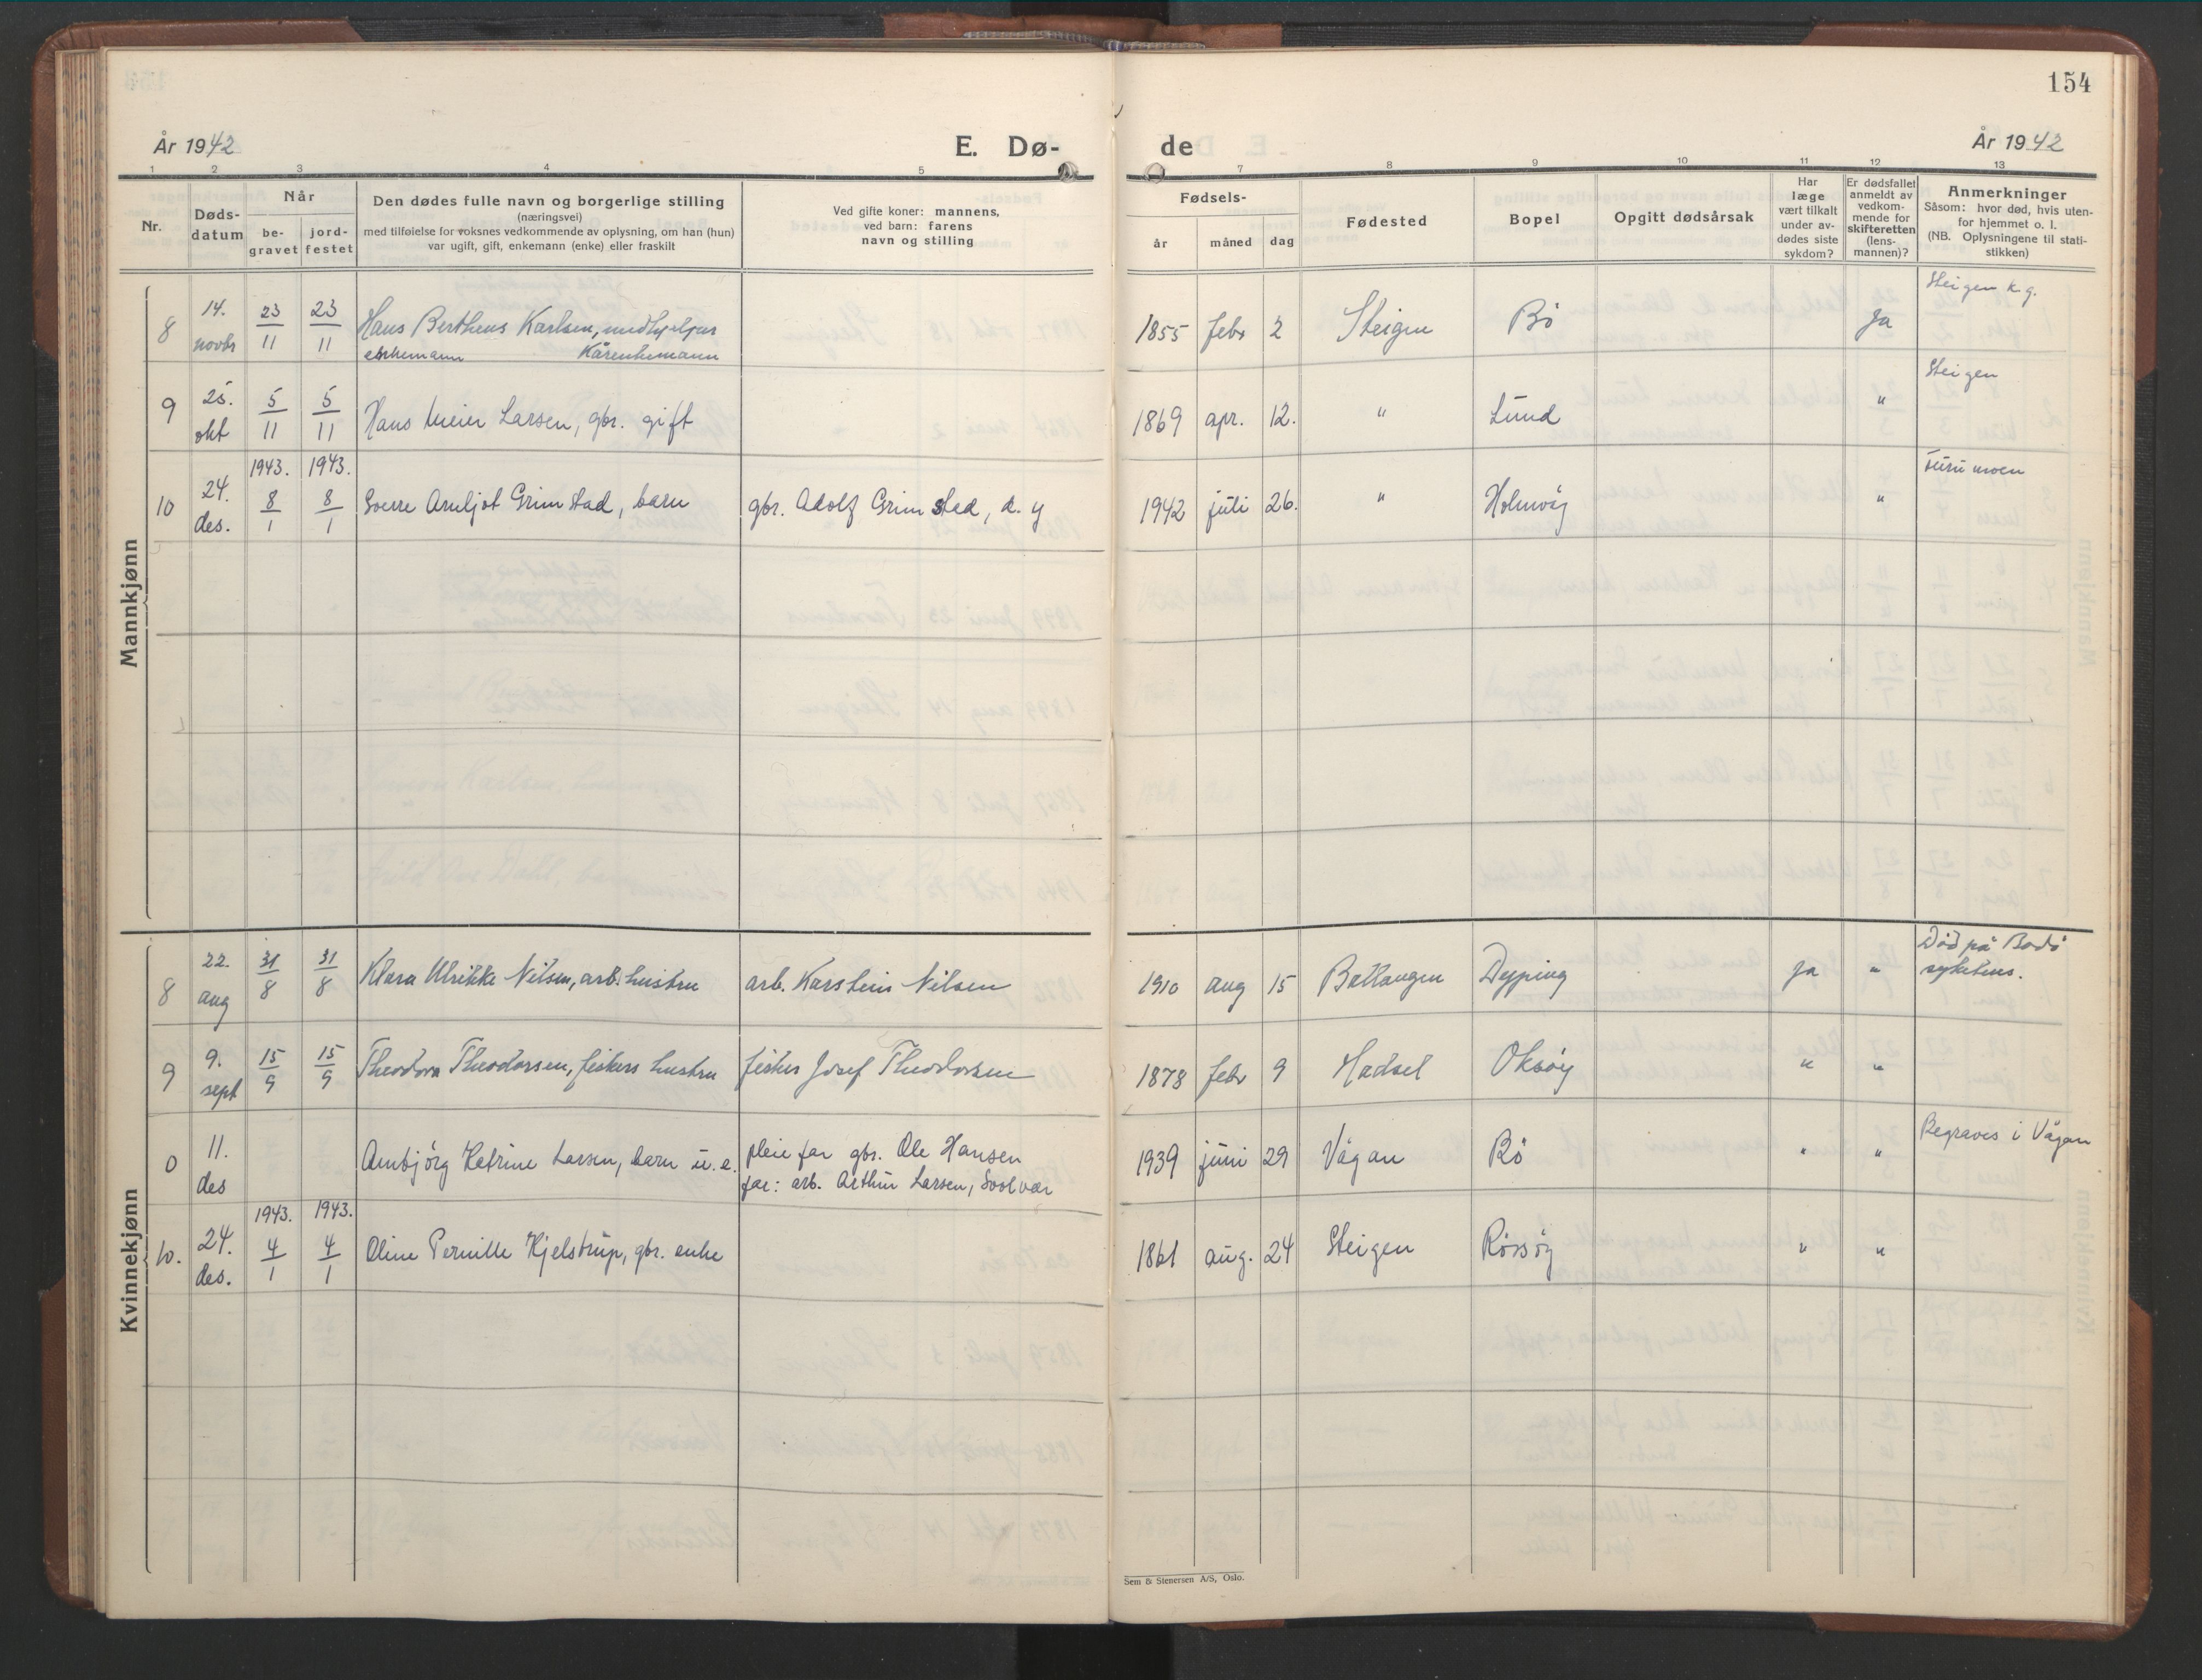 154
År 1942
E. Dø-
de
År 1942
1 2 3 4 5 7 8 9 10 11 12 13
Nr.
Døds-
datum
Når
be-
gravet
jord-
festet
Den dødes fulle navn og borgerlige stilling
(næringsvei)
med tilføielse for voksnes vedkommende av oplysning, om han (hun)
var ugift, gift, enkemann (enke) eller fraskilt
Ved gifte koner: mannens,
ved barn: farens
navn og stilling
Fødsels-
år måned dag
Fødested
Bopel
Opgitt dødsårsak
Har
læge
vært tilkalt
under av-
dødes siste
sykdom?
Er dødsfallet
anmeldt av
vedkom-
mende for
skifteretten
(lens-
mannen)?
Anmerkninger
Såsom: hvor død, hvis uten-
for hjemmet o. l.
(NB. Oplysningene til stati-
stikken)
Mannkjønn
8 14. novbr 23/11 23/11 Hans Bertheus Karlsen, 1855 febr 2 Steigen Bö Ja Steigen k.g.
enkemann Kårenkemann
9 25. okt 5/11 5/11 Hans Meier Larsen, gbr. gift 1869 apr. 12. " Lund " Steigen
10 24. des. 1943. 8/1 1943. 8/1 Sverre Arnljot Grimstad, barn gbr. Adolf Grimstad, d. y 1942 juli 26. " Holmvåg " Furumoen
Kvinnekjønn
8 22. aug 31/8 31/8 Klara Ulrikke Nilsen, arb. hustru arb. Karstein Nilsen 1910 aug 15 Ballangen Dypping Ja " Död på Bodö
sykehus.
9 9. sept 15/9 15/9 Theodora Theodorsen, fiskers hustru fisker Josef Theodorsen 1878 febr 9 Hadsel Oksöy " "
0 11. des Arnbjörg Katrine Larsen, barn u. e. pleiefar gbr. Ole Hansen 1939 juni 29 Vågan Bö " " Begraves i Vågan
far: arb. Arthur Larsen, Svolvær
10. 24. des. 1943. 4/1 1943. 4/1 Oline Pernille Kjelstrup, gbr. enke 1861 aug. 24 Steigen Rössöy " "
Sem & Stenersen A/S, Oslo.